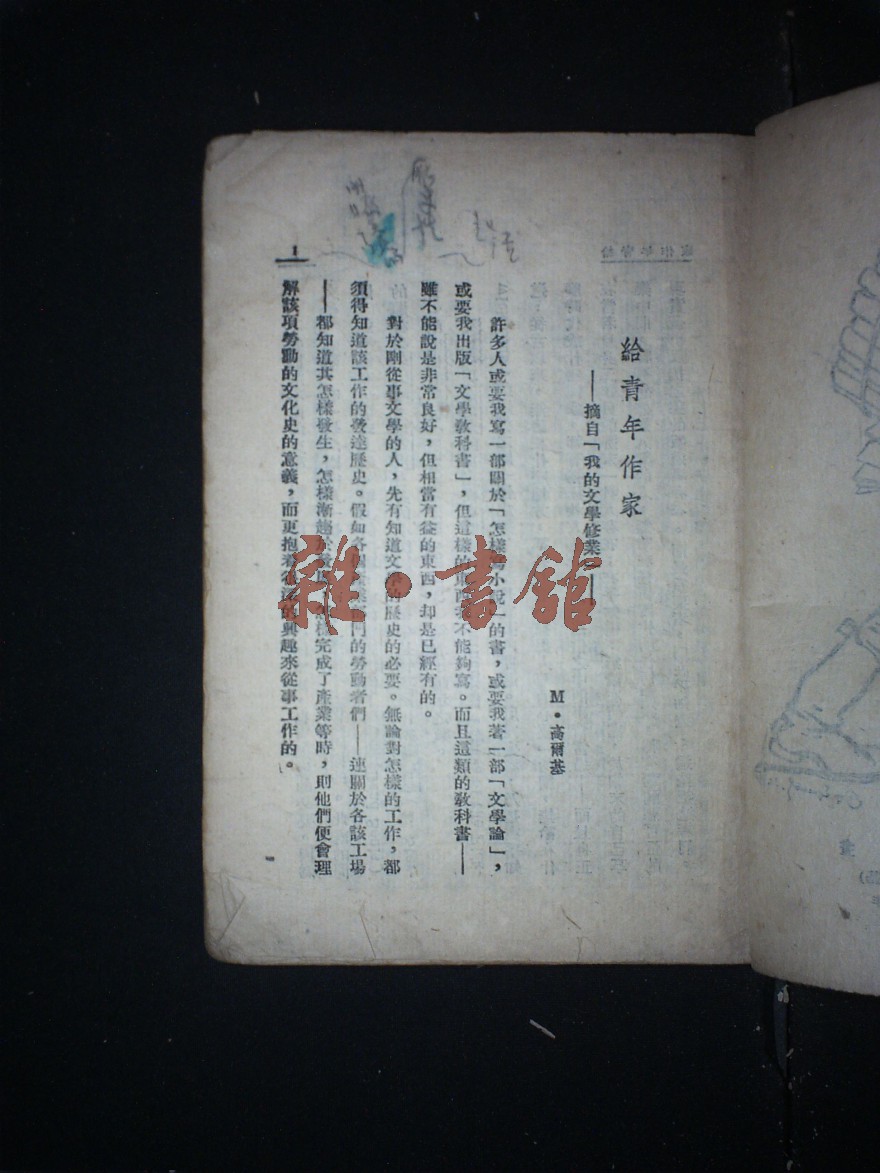 給青年作家
——摘自「我的文學修業」——
M・高爾基
許多人或要我寫一部關於「怎樣寫小說」的書，或要我著一部「文學論」，
或要我出版「文學教科書」，但這樣的東西我不能夠寫。而且這類的教科書——
雖不能說是非常良好，但相當有益的東西，却是已經有的。
對於剛從事文學的人，先有知道文學的歷史的必要。無論對怎樣的工作，都
須得知道該工作的發達歷史。假如各個產業部門的勞動者們——連關於各該工場
——都知道其怎樣發生，怎樣漸趨於發展，怎樣完成了產業等時，則他們便會理
解該項勞動的文化史的意義，而更抱着 的興趣來從事工作的。
1
雜・書館